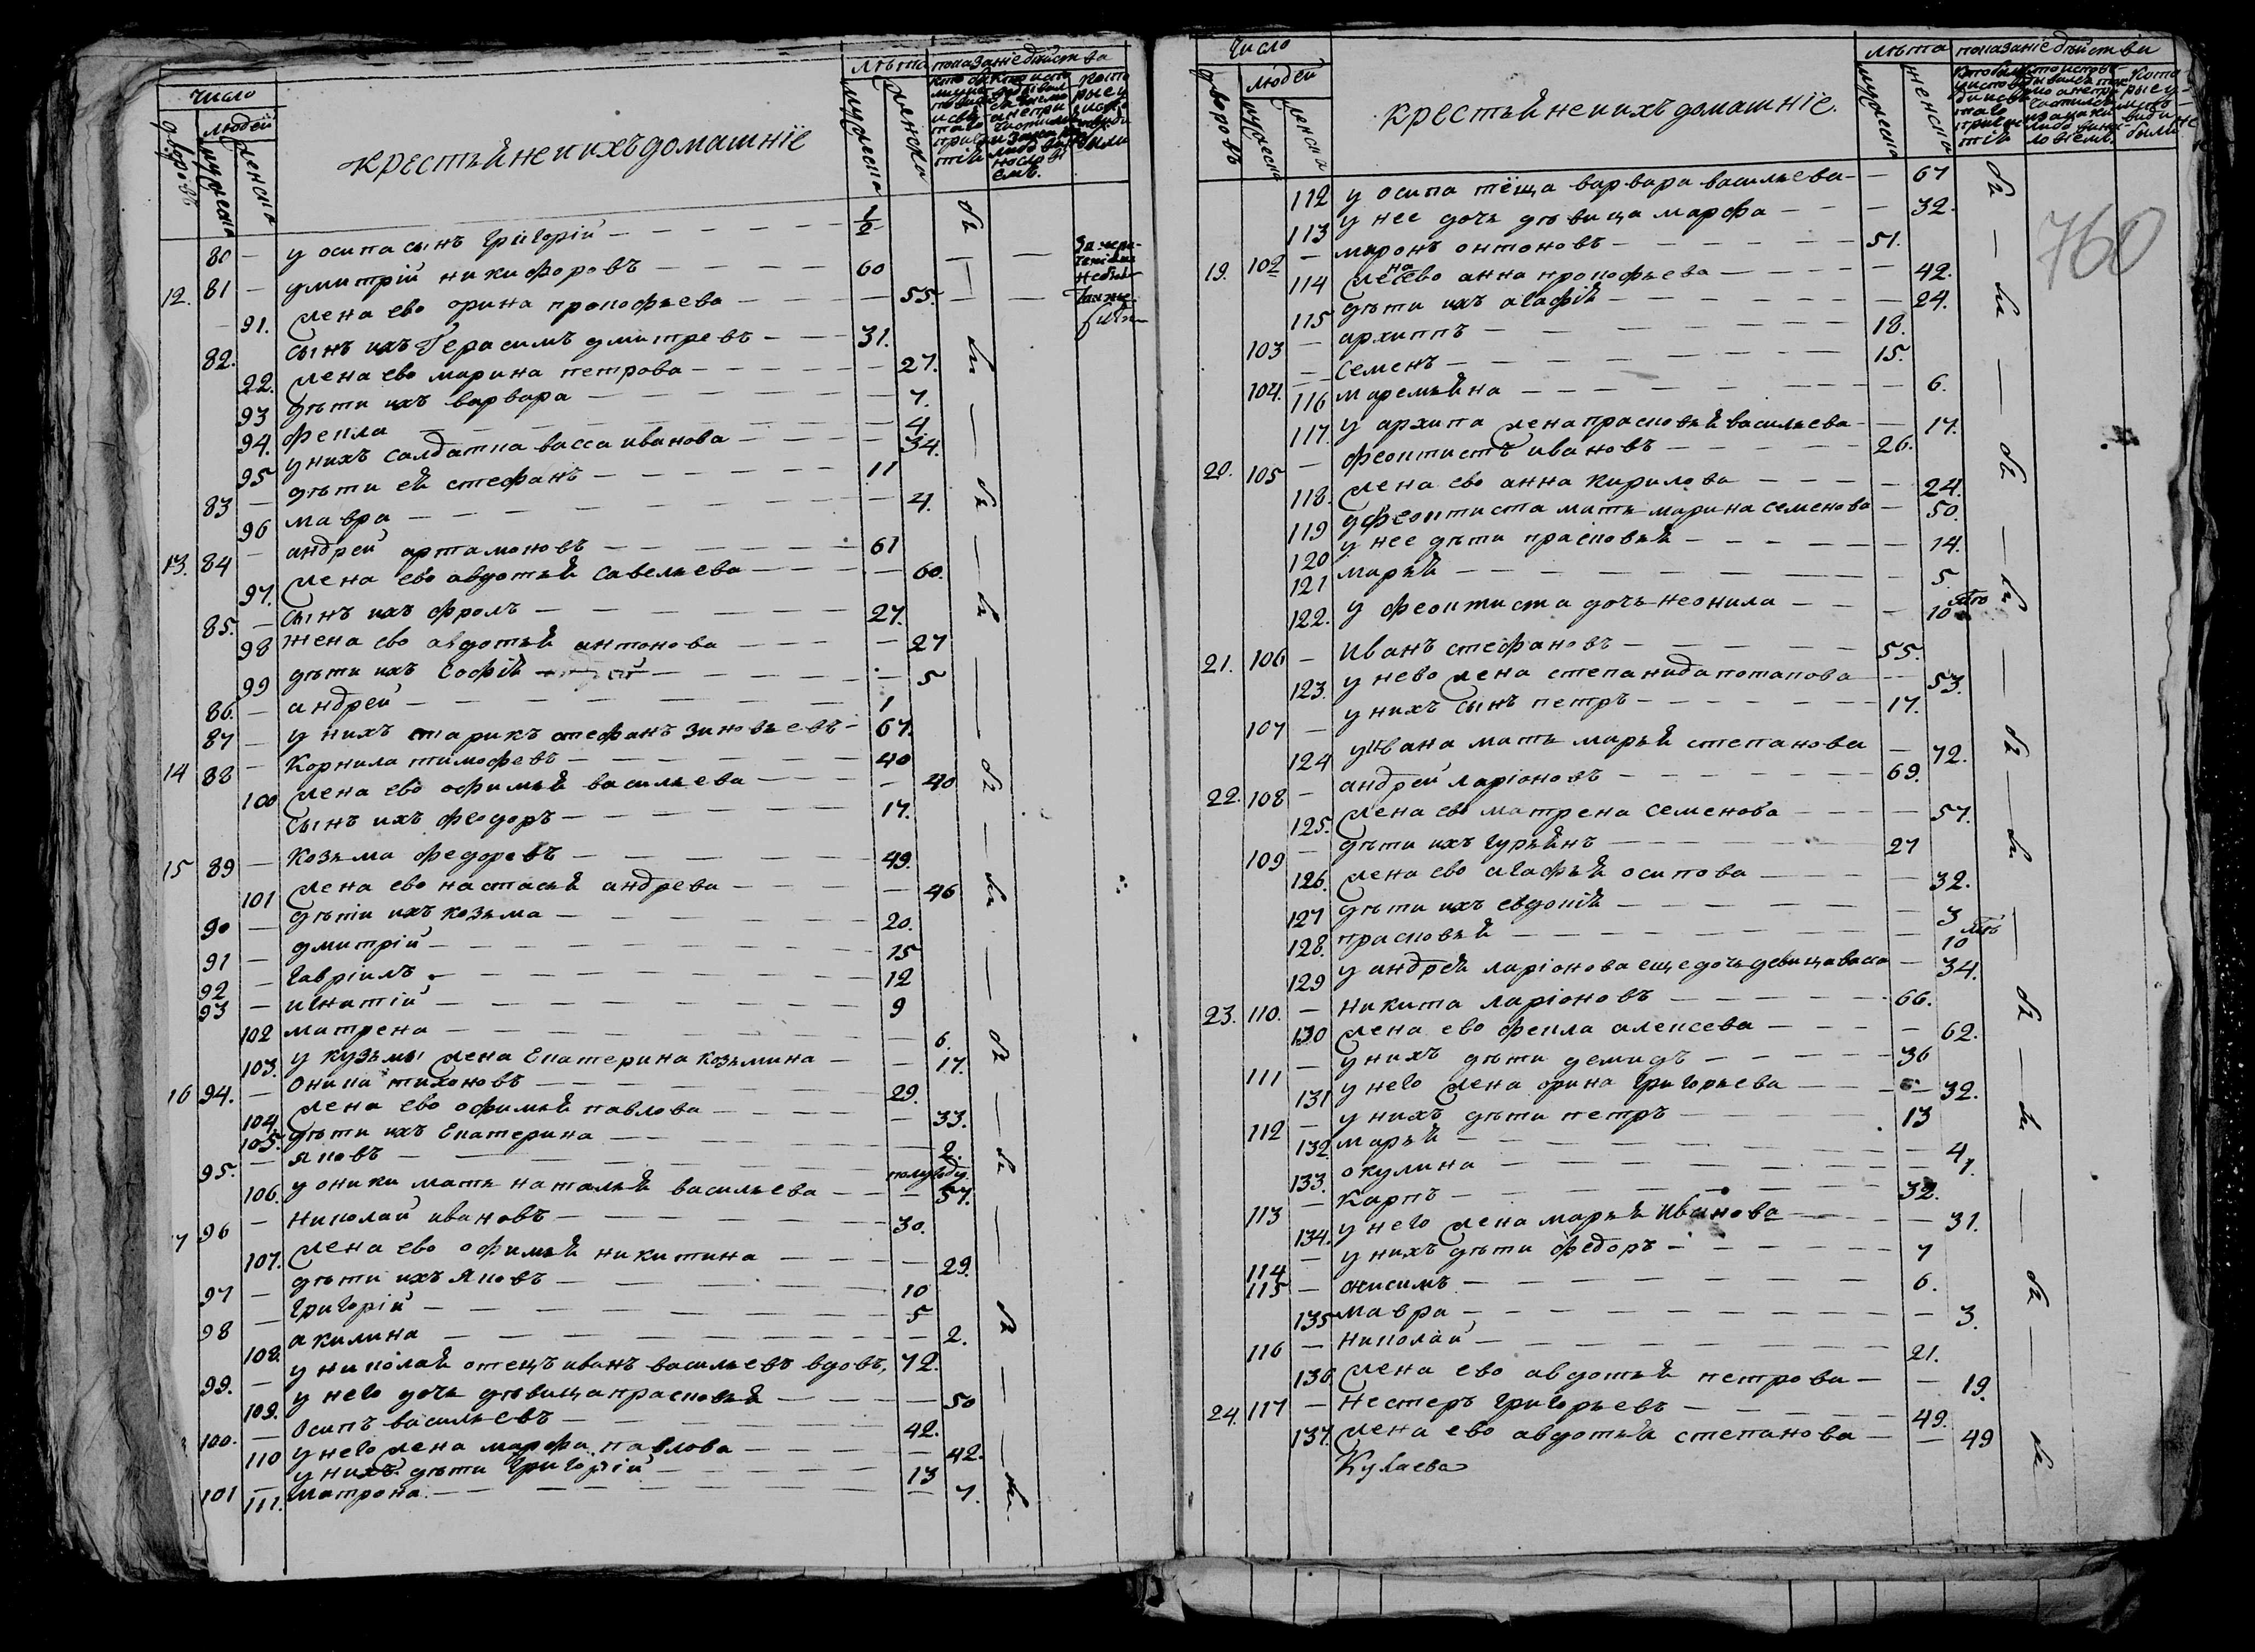 Число
дворовъ
людей
мужеска
женска
крестьяне и ихъ домашнїе
лѣта
мужеска
женска
показанїе дѣйства
80 — у осипа сынъ Григорїй — 1/2
12. 81 — дмитрїй никифоровъ — 60
91. жена ево орина прокофьева — 55.
82. сынъ ихъ Герасимъ дмитревъ — 31.
22. жена ево марина петрова — 27.
93 дѣти ихъ варвара — 7.
94. фекла — 4
95 у нихъ салдатка васса иванова — 34.
83 — дѣти ея стефанъ — 11
96 мавра — 4.
13. 84 — андрей артамоновъ — 61
97. жена ево авдотья савельева — 60.
85. — сынъ ихъ фролъ — 27.
98 жена ево авдотья антонова — 27
99 дѣти ихъ Софїя — 5
86. — андрей — 1
87 — у нихъ старикъ стефанъ зиновьевъ — 67.
14 88 — Корнила тимофевъ — 40
100 жена ево офимья васильева — 40
сынъ ихъ феодоръ — 17.
15 89 — Козьма федоревъ — 49.
101 жена ево настасья андрева — 46
90 — дѣти ихъ козьма — 20.
91 — дмитрїй — 15
92 — гаврїилъ — 12
93 — игнатїй — 9
102 матрена — 6.
103. у кузьмы жена Екатерина козьмина — 17.
16 94. — Оника тихоновъ — 29.
104 жена ево офимья павлова — 33.
105. дѣти ихъ Екатерина — 2.
95. — яковъ — полугоду
106. у оники мать наталья васильева — 57.
7 96 — Николай ивановъ — 30.
107. жена ево офимья никитина — 29.
97 — дѣти ихъ яковъ — 10
98 — григорїй — 5
108. акилина — 2.
99. — у николая отецъ иванъ васильевъ вдовъ, 72.
109. у него дочь дѣвица прасковья — 50
100. — Осипъ васильевъ — 42.
110 у него жена марфа павлова — 42.
101 — у нихъ дѣти григорїй — 13
111. матрона — 7.
Число
дворовъ
людей
мужеска
женска
крестьяне и ихъ домашнїе.
лѣта
мужеска
женска
показанїе дѣйстви
760
112 у осипа тёща варвара васильева — 67
113 у нее дочь дѣвица марфа — 32.
19. 102 — миронъ онтоновъ — 51.
114 жена ево анна прокофьева — 42.
115 дѣти ихъ агафїя — 24.
103 — архиппъ — 18.
104. — семенъ — 15.
116 маремьяна — 6.
117. у архипа жена прасковья васильева — 17.
20. 105 — феоктистъ ивановъ — 26.
118. жена ево анна кирилова — 24.
119 у феоктиста мать марина семенова — 50.
120 у нее дѣти прасковья — 14.
121 марья — 5
122. у феоктиста дочь неонила — 10
21. 106 — Иванъ стефановъ — 55.
123. у нево жена степанида потапова — 53.
107 — у нихъ сынъ петръ — 17.
124 у Ивана мать марья степанова — 72.
22. 108 — андрей ларїоновъ — 69.
125. жена ево матрена семенова — 57.
109 — дѣти ихъ гурьянъ — 27
126. жена ево агафья осипова — 32.
127 дѣти ихъ евдокїя — 3
128. прасковья — 10
129 у андрея ларїонова еще дочь девица васса — 34.
23. 110. — Никита ларїоновъ — 66.
130 жена ево фекла алексева — 62.
111 — у нихъ дѣти демидъ — 36
131 у него жена орина григорьева — 32.
112 — у нихъ дѣти петръ — 13
132. марья — 4
133. окулина — 1.
113 — Карпъ — 32.
134. у него жена марья Иванова — 31.
114 — у нихъ дѣти федоръ — 7
115 — онисимъ — 6.
135 мавра — 3.
116 — николай — 21.
136 жена ево авдотья петрова — 19.
24. 117 — Нестеръ григорьевъ — 49.
137. жена ево авдотья степанова — 49